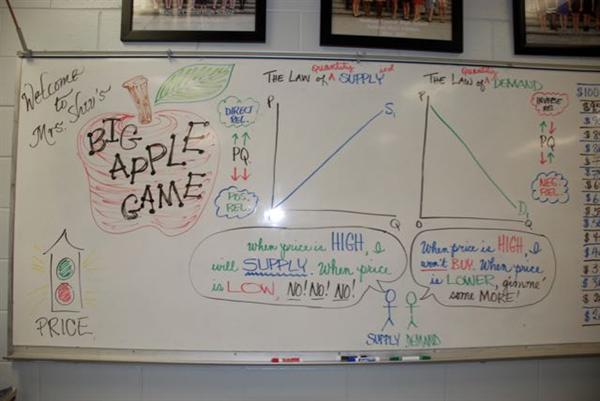 Welcome
to
Mrs. Shiv's
BIG
APPLE
GAME
PRICE
DIRECT
REL.
PQ
POS.
REL.
Quantity
THE LAW OF SUPPLY ied
P
S1
Q
When price is HIGH, I
will SUPPLY. When price
is LOW, NO! NO! NO!
Quantity
THE LAW OF DEMAND
P
D1
0
Q
INVERSE
REL.
PQ
NEG.
REL.
When price is HIGH, I
won't BUY. When price
is LOWER, gimme'
some MORE!
SUPPLY DEMAND
$100